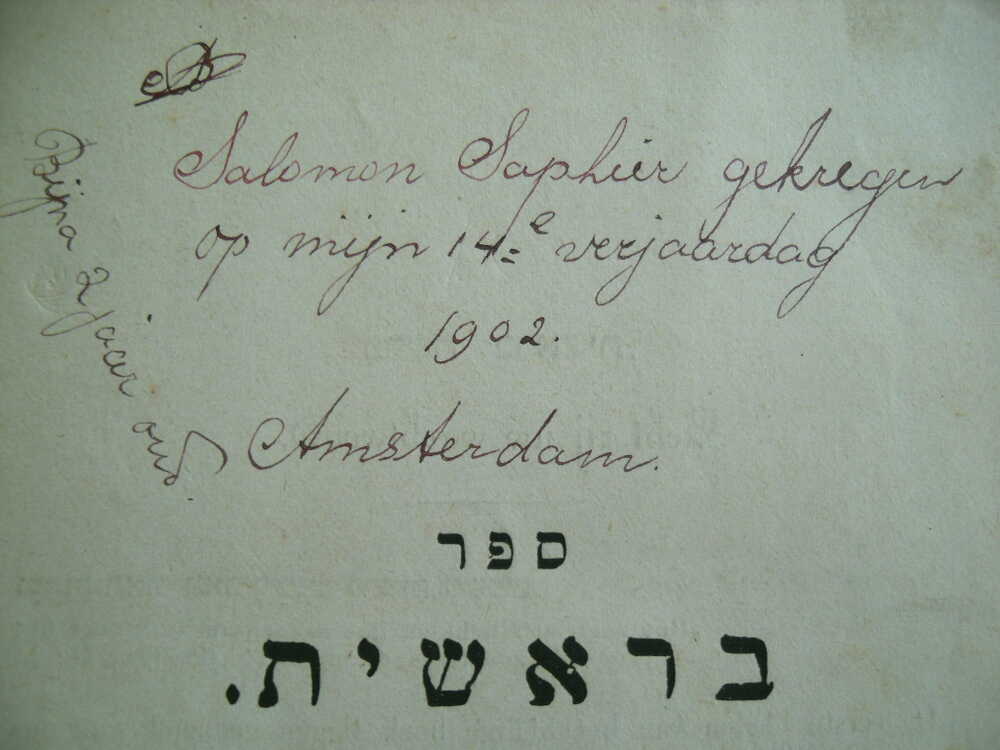 Salomon Saphier gekregen
op mijn 14=e verjaardag
1902.
Amsterdam.
Bijna 2 jaar oud.
ספר
בראשית.